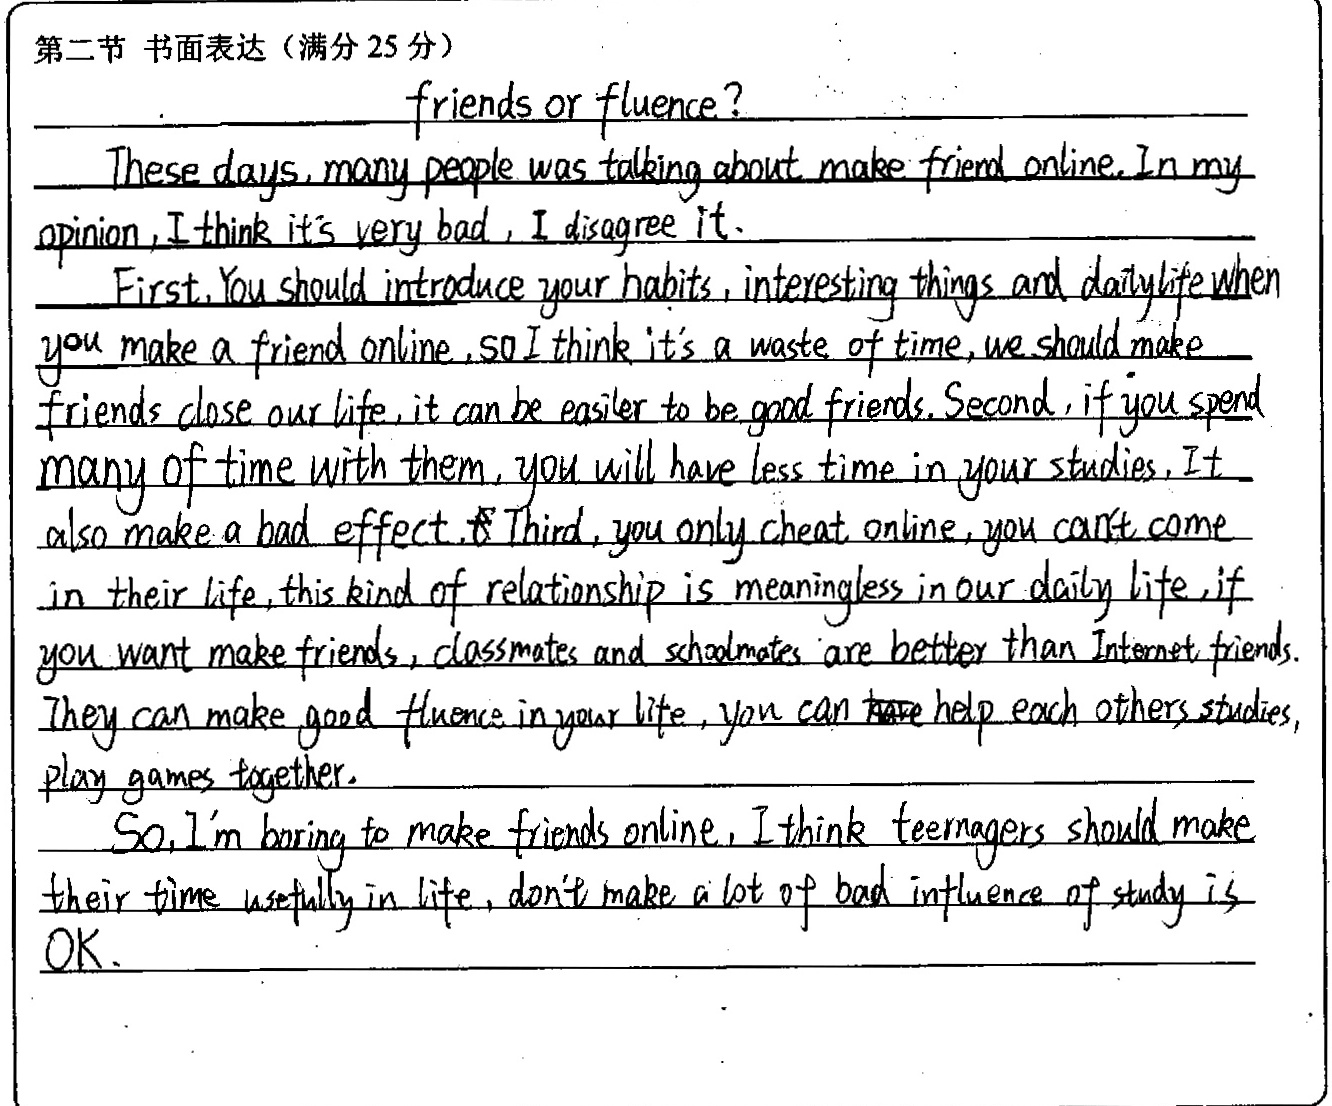 第二节 书面表达（满分 25 分）
friends or fluence?
These days, many people was talking about make friend online. In my
opinion, I think it's very bad, I disagree it.
First, You should introduce your habits, interesting things and dailylife when
you make a friend online, so I think it's a waste of time, we should make
friends close our life, it can be easiler to be good friends. Second, if you spend
many of time with them, you will have less time in your studies, It
also make a bad effect. Third, you only cheat online, you can't come
in their life, this kind of relationship is meaningless in our daily life, if
you want make friends, classmates and schoolmates are better than Internet friends.
They can make good fluence in your life, you can help each others studies,
play games together.
So, I'm boring to make friends online, I think teernagers should make
their time usefully in life, don't make a lot of bad influence of study is
OK.